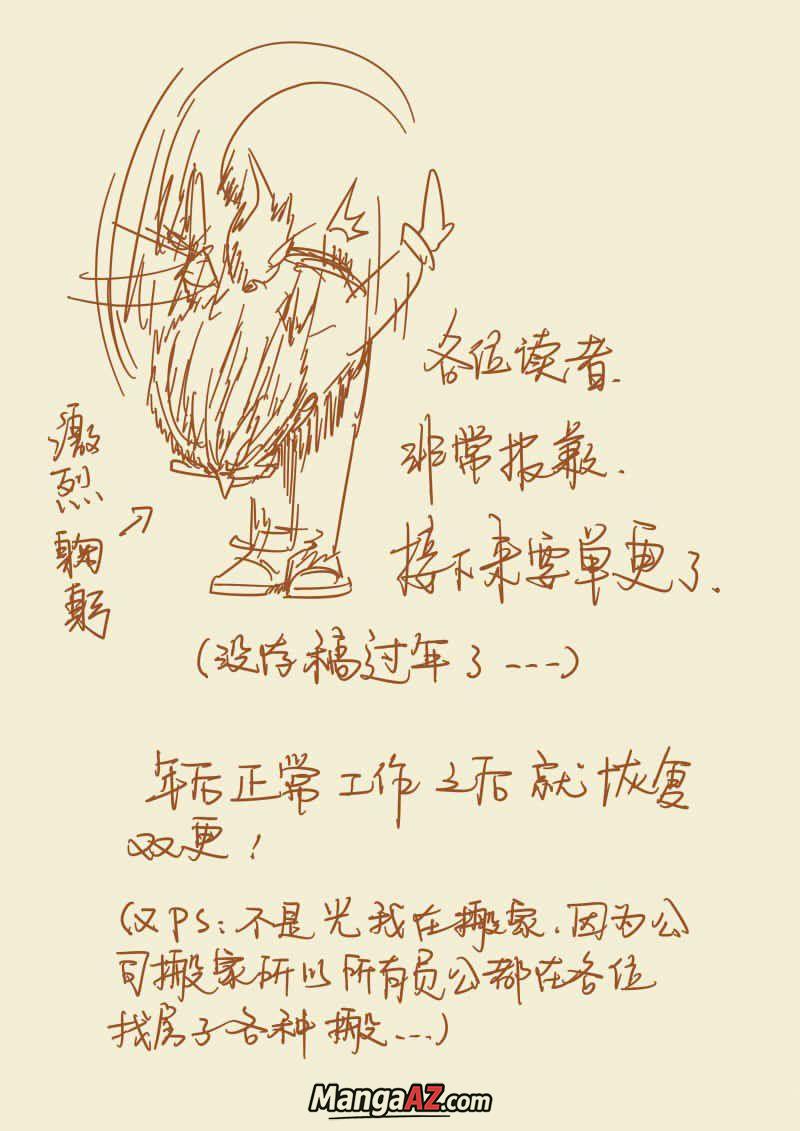 各位读者.
非常抱歉.
接下来要单更了.
激烈鞠躬
(没存稿过年了----)
年后正常工作之后就恢复
双更!
(又PS:不是光我在搬家.因为公
司搬家所以所有员公都在各位
找房子各种搬...)
MangaAZ.com